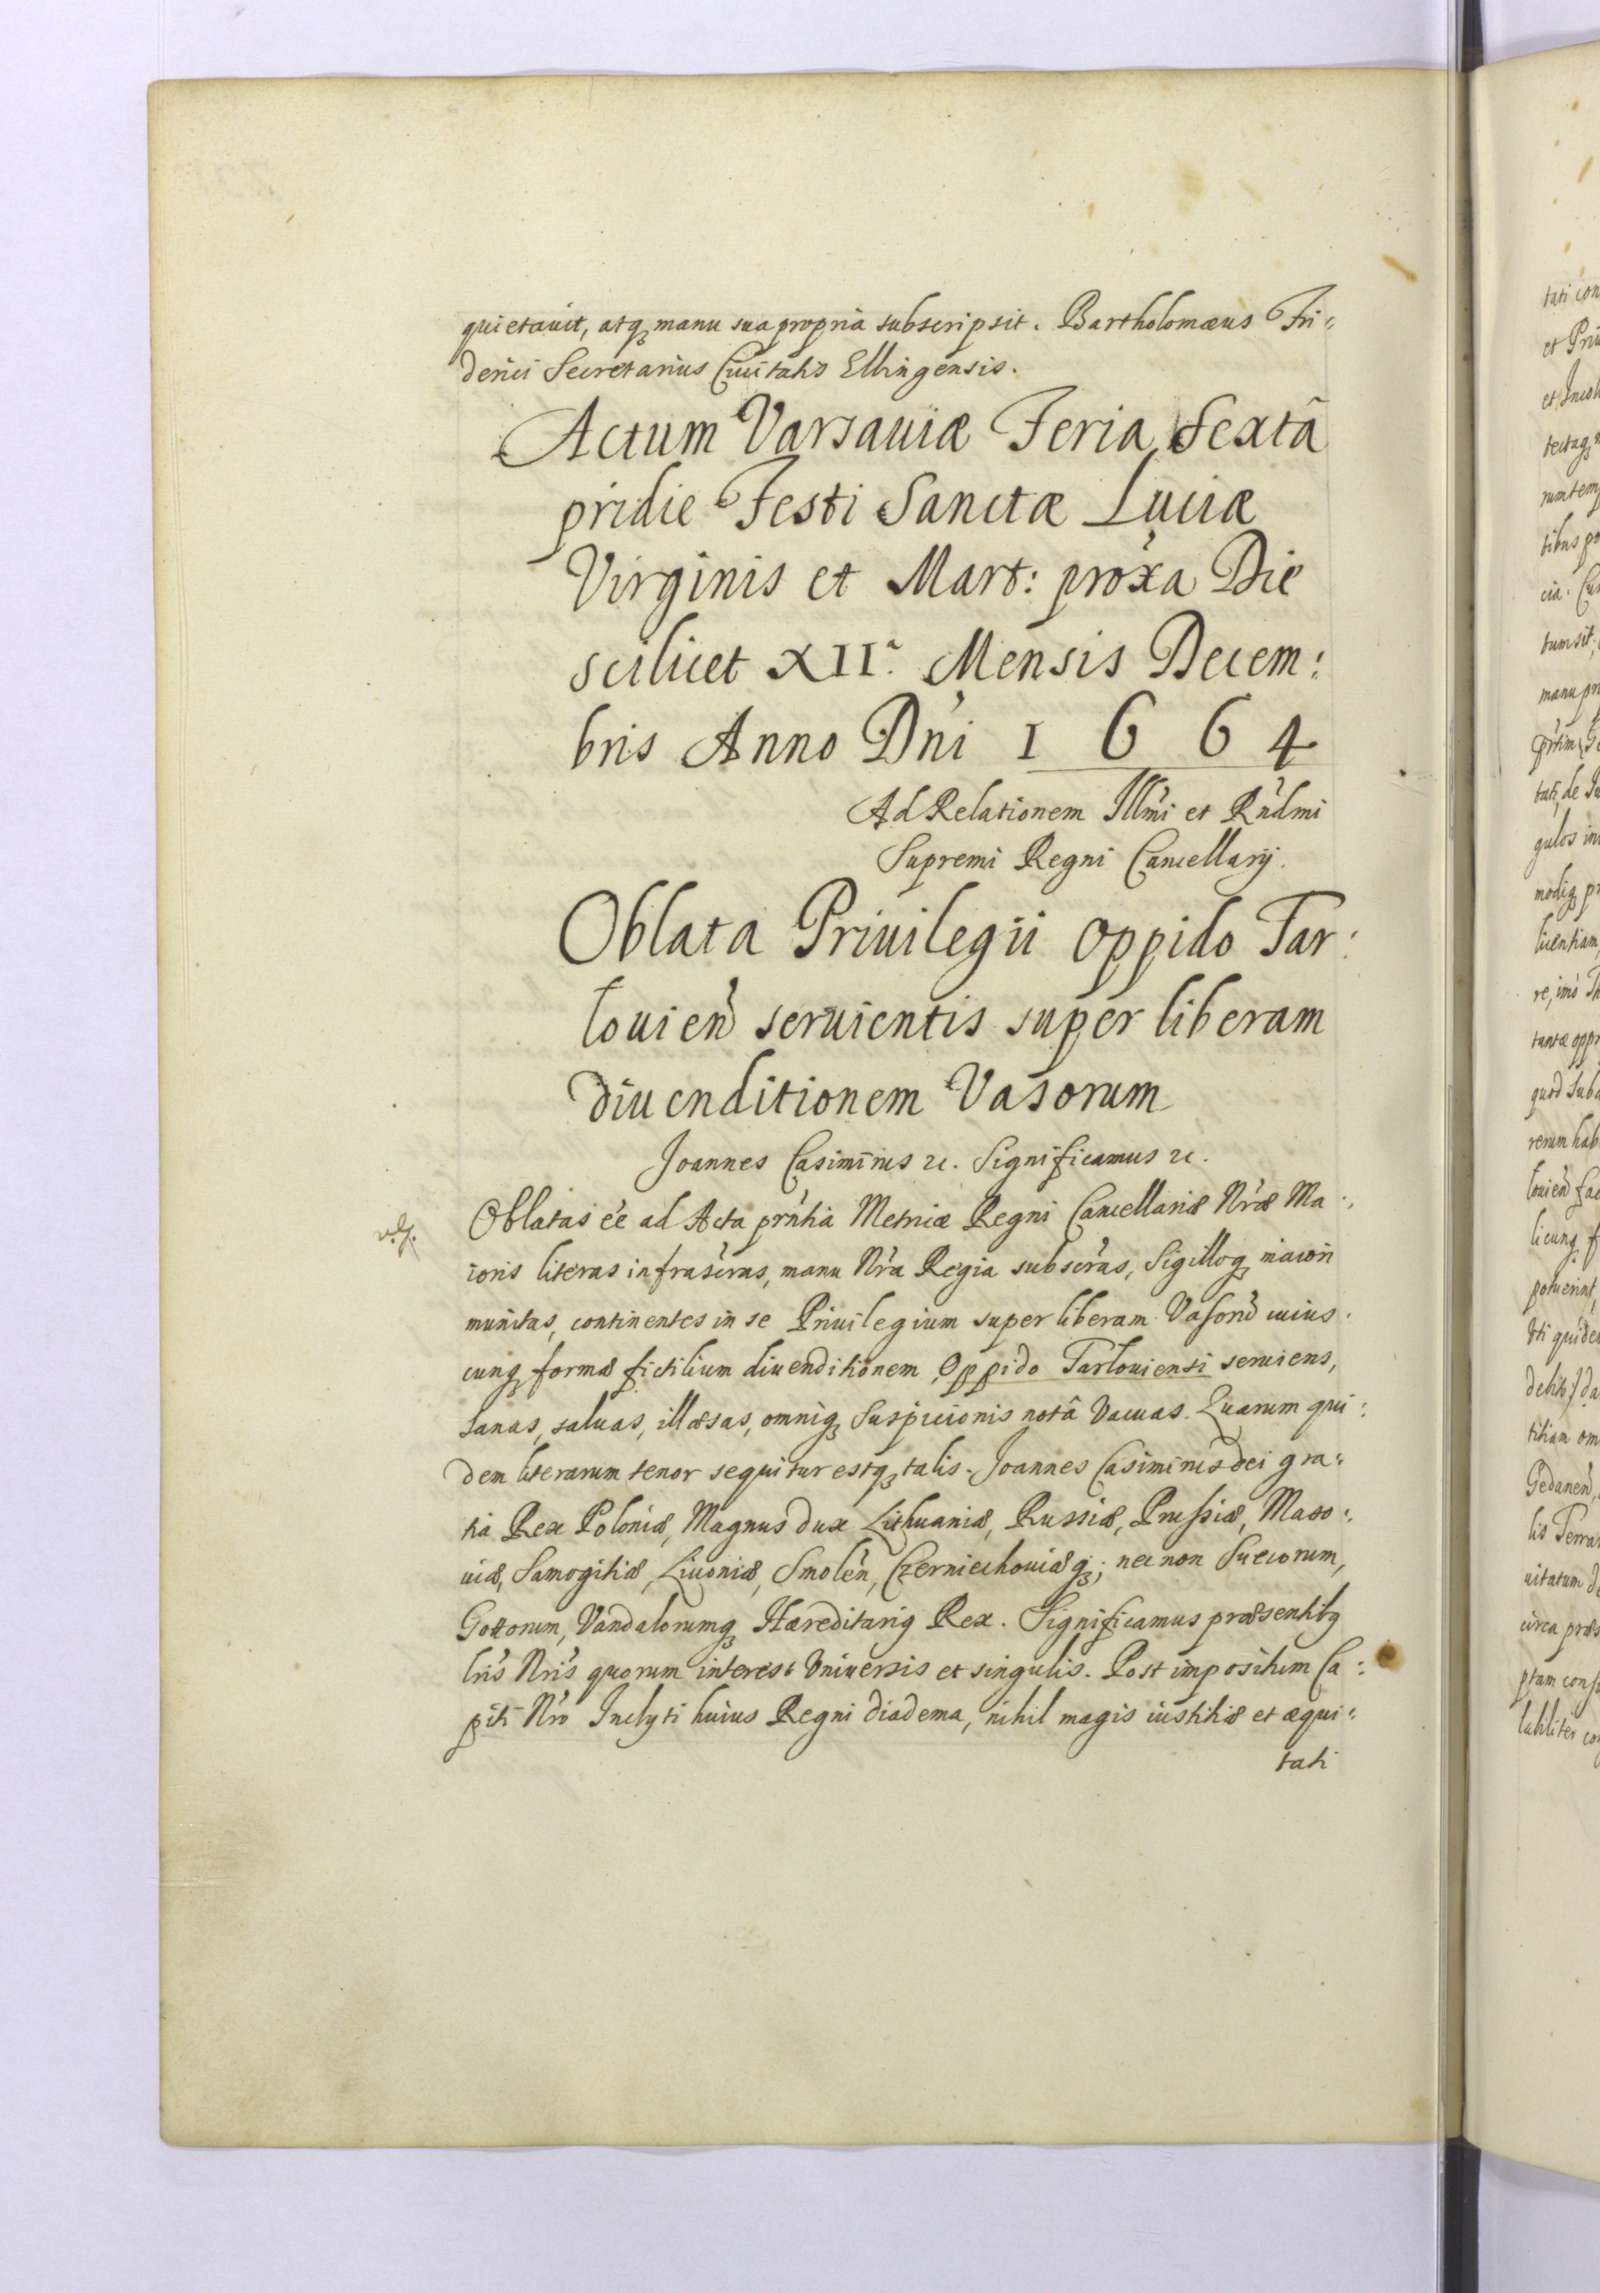 quietauit, atq₃ manu sua propria subscripsit. Bartholomæus Fri:
derici Secretarius Ciuitatis Elbingensis.
Actum Varsauiæ Feria Sextâ
pridie Festi Sanctæ Luciæ
Virginis et Mart: prox̀a Die
scilicet XIIa. Mensis Decem:
bris Anno Dni 1664
Ad Relationem Illmi et Rndmi
Supremi Regni Cancellarij.
Oblata Priuilegii oppido Tar:
louien seruientis super liberam
diuenditionem Vasorum
Joannes Casimirus etc. Significamus etc.
Oblatas ée ad Acta prntia Metricæ Regni Cancellariæ Nræ Ma:
ioris literas infrascras, manu Nra Regia subscras, Sigilloq₃ maiori
munitas, continentes in se Priuilegium super liberam Vasorũ cuius:
cunq₃ formæ fictilium diuenditionem Oppido Tarlouiensi seruiens,
sanas, saluas, illæsas, omniq₃ Suspicionis notâ Vacuas. Quarum qui:
dem literarum tenor sequitur estq₃ talis. Joannes Casimirus dei gra:
tia Rex Poloniæ, Magnus dux Lithuaniæ, Russiæ, Prussiæ, Maso:
uiæ, Samogitiæ, Liuoniæ, Smolen, Czerniechouiæq₃; nec non Suecorum,
Gottorum, Vandalorumq₃ Hæreditarig Rex. Significamus præsentibg
lris Nris quorum interest Vniuersis et singulis. Post impositum Ca:
piti Nro Inclyti huius Regni diadema, nihil magis iustitiæ et æqui:
tati